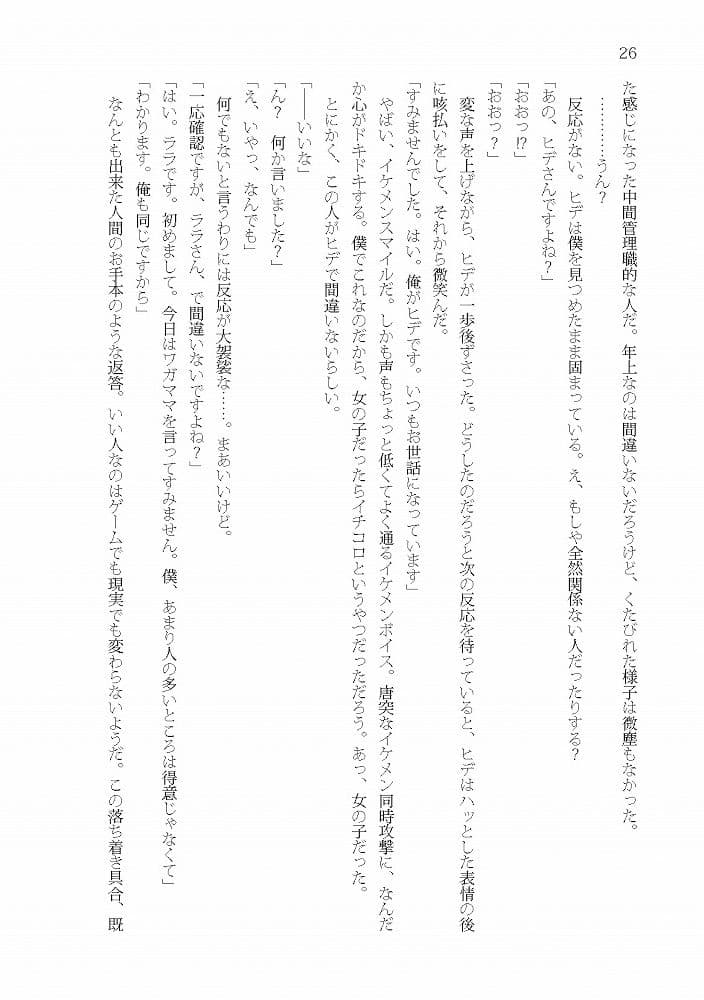 26
た感じになった中間管理職的な人だ。年上なのは間違いないだろうけど、くたびれた様子は微塵もなかった。
…………うん?
反応がない。ヒデは僕を見つめたまま固まっている。え、もしや全然関係ない人だったりする?
「あの、ヒデさんですよね?」
「おおっ⁉」
「おおっ?」
変な声を上げながら、ヒデが一歩後ずさった。どうしたのだろうと次の反応を待っていると、ヒデはハッとした表情の後
に咳払いをして、それから微笑んだ。
「すみませんでした。はい。俺がヒデです。いつもお世話になっています」
やばい、イケメンスマイルだ。しかも声もちょっと低くてよく通るイケメンボイス。唐突なイケメン同時攻撃に、なんだ
か心がドキドキする。僕でこれなのだから、女の子だったらイチコロというやつだっただろう。あっ、女の子だった。
とにかく、この人がヒデで間違いないらしい。
「――いいな」
「ん? 何か言いました?」
「え、いやっ、なんでも」
何でもないと言うわりには反応が大袈裟な……。まあいいけど。
「一応確認ですが、ララさん、で間違いないですよね?」
「はい。ララです。初めまして。今日はワガママを言ってすみません。僕、あまり人の多いところは得意じゃなくて」
「わかります。俺も同じですから」
なんとも出来た人間のお手本のような返答。いい人なのはゲームでも現実でも変わらないようだ。この落ち着き具合、既